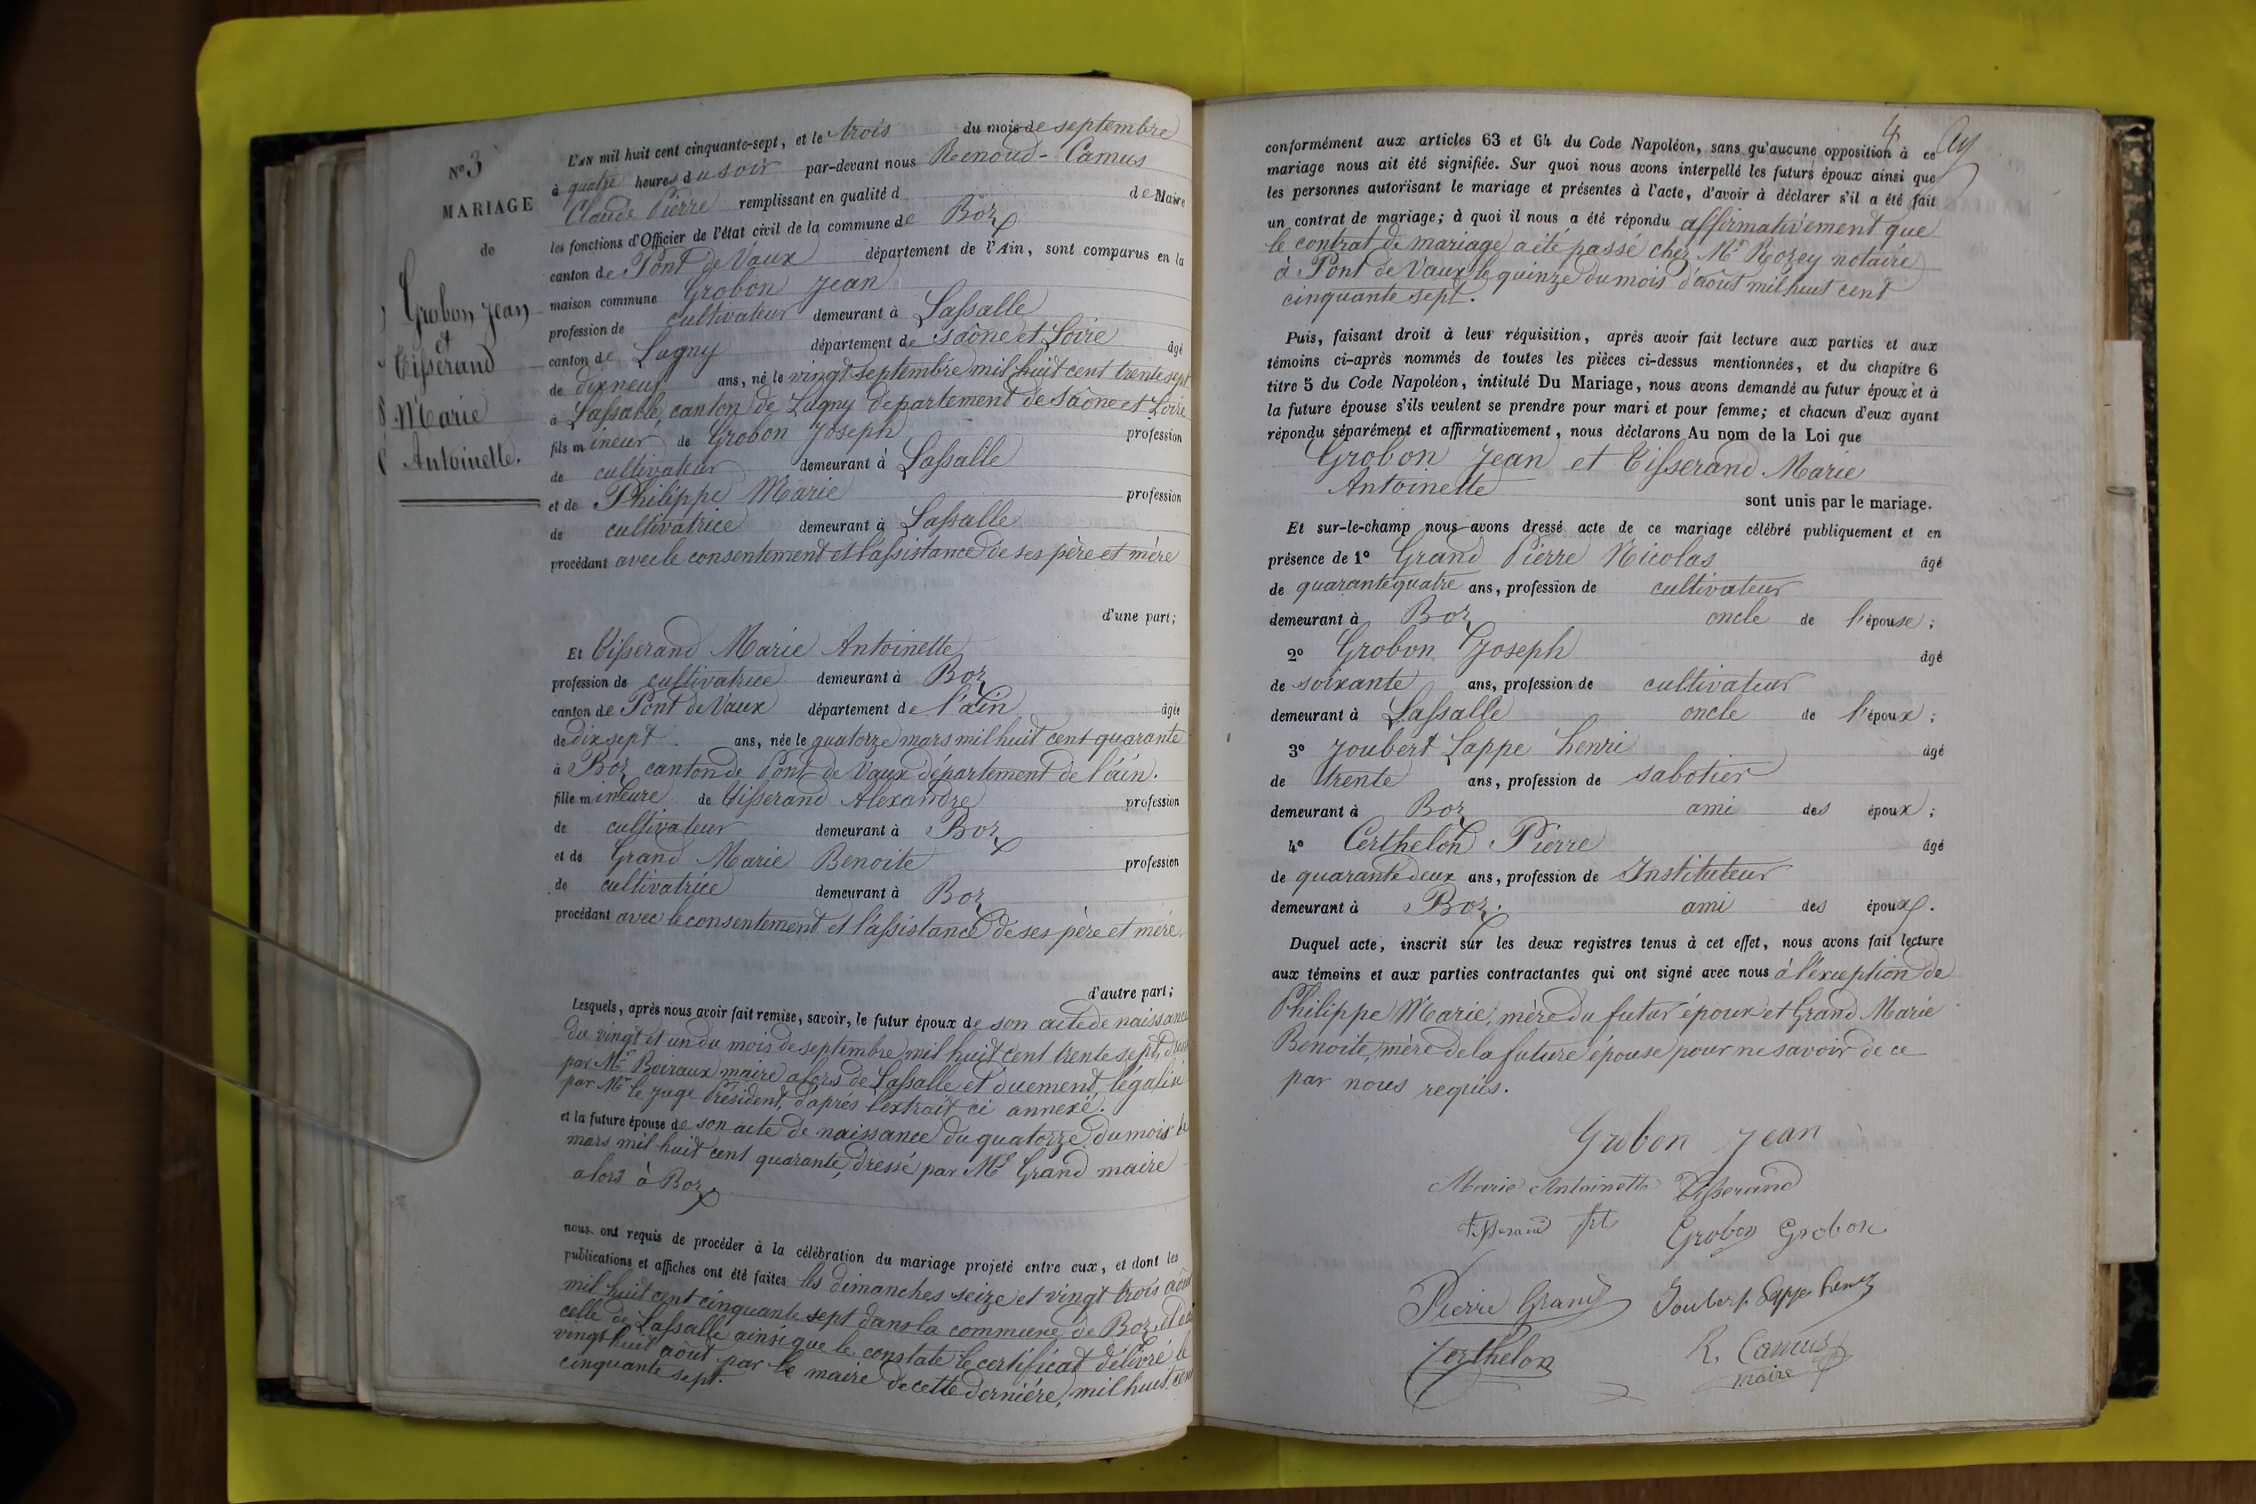 N° 3
MARIAGE
de
Grobon Jean
et
Tisserand
Marie
Antoinette.
L'AN mil huit cent cinquante-sept, et le trois du mois de septembre
à quatre heures du soir par-devant nous Renoud-Camus
Claude Pierre remplissant en qualité d de Maire
les fonctions d'Officier de l'état civil de la commune de Boz
canton de Pont de Vaux département de l'Ain, sont comparus en la
maison commune Grobon Jean
profession de cultivateur demeurant à Lassalle
canton de Lugny département de Saône et Loire âgé
de dix neuf ans, né le vingt septembre mil huit cent trente sept
à Lassalle, canton de Lugny département de Saône et Loire
fils mineur de Grobon Joseph profession
de cultivateur demeurant à Lassalle
et de Philippe Marie profession
de cultivatrice demeurant à Lassalle
procédant avec le consentement et l'assistance de ses père et mère
d'une part;
Et Tisserand Marie Antoinette
profession de cultivatrice demeurant à Boz
canton de Pont de Vaux département de l'ain âgée
de dix sept ans, née le quatorze mars mil huit cent quarante
à Boz canton de Pont de Vaux département de l'ain.
fille mineure de Tisserand Alexandre profession
de cultivateur demeurant à Boz
et de Grand Marie Benoite profession
de cultivatrice demeurant à Boz
procédant avec le consentement et l'assistance de ses père et mère.
d'autre part;
Lesquels, après nous avoir fait remise, savoir, le futur époux de son acte de naissance
du vingt et un du mois de septembre mil huit cent trente sept,
par Mr Boiraux maire alors de Lassalle et duement légalisé
par Mr le juge Président, d'après l'extrait ci annexé.
et la future épouse de son acte de naissance du quatorze du mois de
mars mil huit cent quarante, dressé par Mr Grand maire
alors à Boz
nous ont requis de procéder à la célébration du mariage projeté entre eux, et dont les
publications et affiches ont été faites les dimanches seize et vingt trois août
mil huit cent cinquante sept dans la commune de Boz et
celle de Lassalle ainsi que le constate le certificat délivré le
vingt huit août par le maire de cette dernière, mil huit cent
cinquante sept.
4
conformément aux articles 63 et 64 du Code Napoléon, sans qu'aucune opposition à ce
mariage nous ait été signifiée. Sur quoi nous avons interpellé les futurs époux ainsi que
les personnes autorisant le mariage et présentes à l'acte, d'avoir à déclarer s'il a été fait
un contrat de mariage; à quoi il nous a été répondu affirmativement que
le contrat de mariage a été passé chez Mr Rozey notaire
à Pont de Vaux le quinze du mois d'août mil huit cent
cinquante sept.
Puis, faisant droit à leur réquisition, après avoir fait lecture aux parties et aux
témoins ci-après nommés de toutes les pièces ci-dessus mentionnées, et du chapitre 6
titre 5 du Code Napoléon, intitulé Du Mariage, nous avons demandé au futur époux et à
la future épouse s'ils veulent se prendre pour mari et pour femme; et chacun d'eux ayant
répondu séparément et affirmativement, nous déclarons Au nom de la Loi que
Grobon Jean et Tisserand Marie
Antoinette
sont unis par le mariage.
Et sur-le-champ nous avons dressé acte de ce mariage célébré publiquement et en
présence de 1° Grand Pierre Nicolas âgé
de quarante quatre ans, profession de cultivateur
demeurant à Boz oncle de l'épouse;
2° Grobon Joseph âgé
de soixante ans, profession de cultivateur
demeurant à Lassalle oncle de l'époux;
3° Joubert Lappe henri âgé
de trente ans, profession de sabotier
demeurant à Boz ami des époux;
4° Certhelon Pierre âgé
de quarante deux ans, profession de Instituteur
demeurant à Boz. ami des époux.
Duquel acte, inscrit sur les deux registres tenus à cet effet, nous avons fait lecture
aux témoins et aux parties contractantes qui ont signé avec nous à l'exception de
Philippe Marie, mère du futur époux et Grand Marie
Benoite, mère de la future épouse pour ne savoir de ce
par nous requis.
Grobon Jean
Marie Antoinette Tisserand
Tisserand Grobon Grobon
Pierre Grand Joubert Lappe henri
Certhelon R. Camus
maire